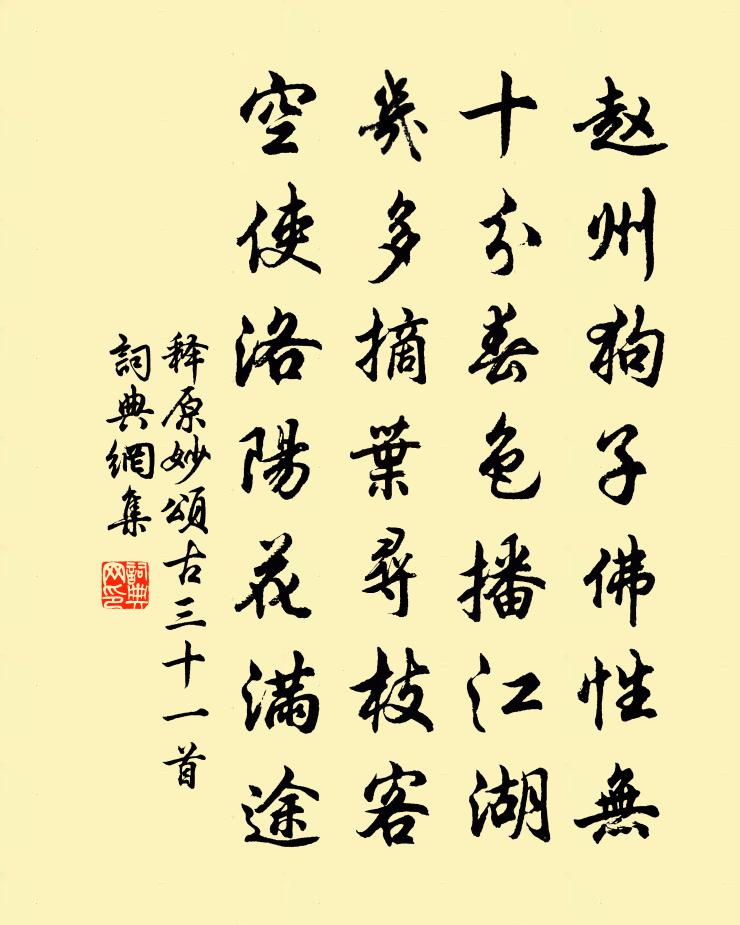 赵州狗子佛性無
十分春色播江湖
幾多摘葉尋枝客
空使洛陽花滿途
释原妙頌古三十一首
詞典網集
詞典
网印